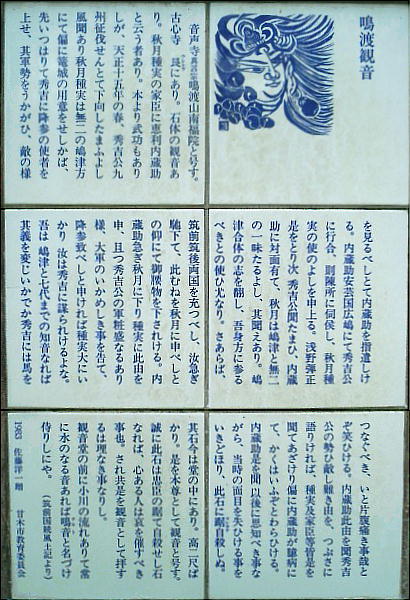 鳴渡観音
音声寺 鳴渡山南福院と号す。
古心寺 艮にあり。石体の観音あ
り。秋月種実の家臣に恵利内蔵助
と云う者あり。本より武功もあり
しが、天正十五年の春、秀吉公九
州征伐せんとて下向したまふよし
風聞あり秋月種実は無二の嶋津方
にて偏に篭城の用意をせしかば、
先いつはりて秀吉に降参の使者を
上せ、其軍勢をうかがひ、敵の様
を見るべしとて内蔵助を指遣しけ
る。内蔵助安芸国広嶋にて秀吉公
に行合、則陳所に伺侯し、秋月種
実の使のよしを申上る。浅野弾正
是をとり次 秀吉公聞たまひ、内蔵
助に対面有て、秋月は嶋津と無二
の一味たるよし、其聞えあり。嶋
津合体の志を翻し、吾身方に参る
べきとの使ひ尤なり。さあらば、
筑前筑後両国を充つべし、汝急ぎ
馳下て、此むねを秋月に申べしと
の仰にて御腰物を下されける。内
蔵助急ぎ秋月に下り種実に此由を
申、且つ秀吉公の軍粧盛なるあり
様、大軍のいかめしき事を告て、
降参致べしと申ければ種実大にい
かり 汝は秀吉に謀られけるよな。
吾は嶋津と七代までの知音なれば
其義を変じいかでか秀吉には馬を
つなぐべき、いと片腹痛き事哉と
ぞ笑ひける。内蔵助此由を聞秀吉
公の勢ひ敵し難き由を、つぶさに
語りければ、種実及家臣等皆是を
聞てあざけり偏に内蔵助が臆病に
て、かくはいふぞとわらひける。
内蔵助是を聞以後に思知べき事な
がら、当時の面目を失ひける事を
いきどほり、此石に踞て自殺しぬ。
其石今は堂の中にあり。高二尺ば
かり。是を本尊として観音と号す。
誠に此石は忠臣の踞て自殺せし石
なれば、心ある人は哀を催すべき
事也。され共是を観音として拝す
るは理なき事なりし。
観音堂の前に小川の流れありて常
に水のなる音あれば鳴音と名づけ
侍りしにや。（筑前国続風土記より）
1983 佐藤洋一贈 甘木市教育委員会